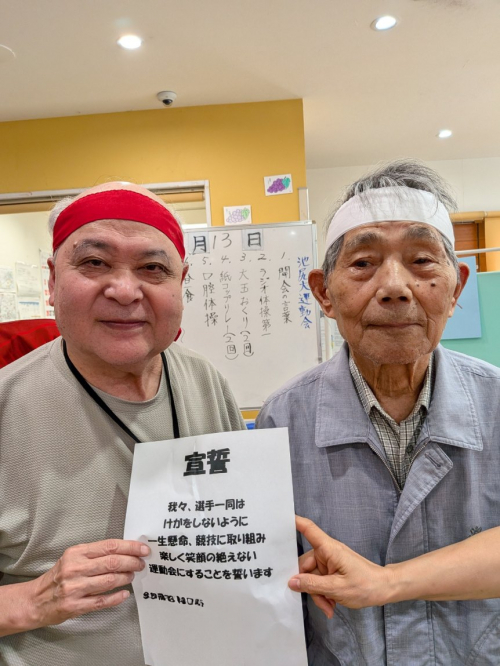 月13日
池袋大運動会
1. 開会の言葉
2. ラジオ体操第一
3. 大玉おくり(2回)
4. 紙コップリレー(2回)
5. 口腔体操
宣誓
我々、選手一同は
けがをしないように
一生懸命、競技に取り組み
楽しく笑顔の絶えない
運動会にすることを誓います